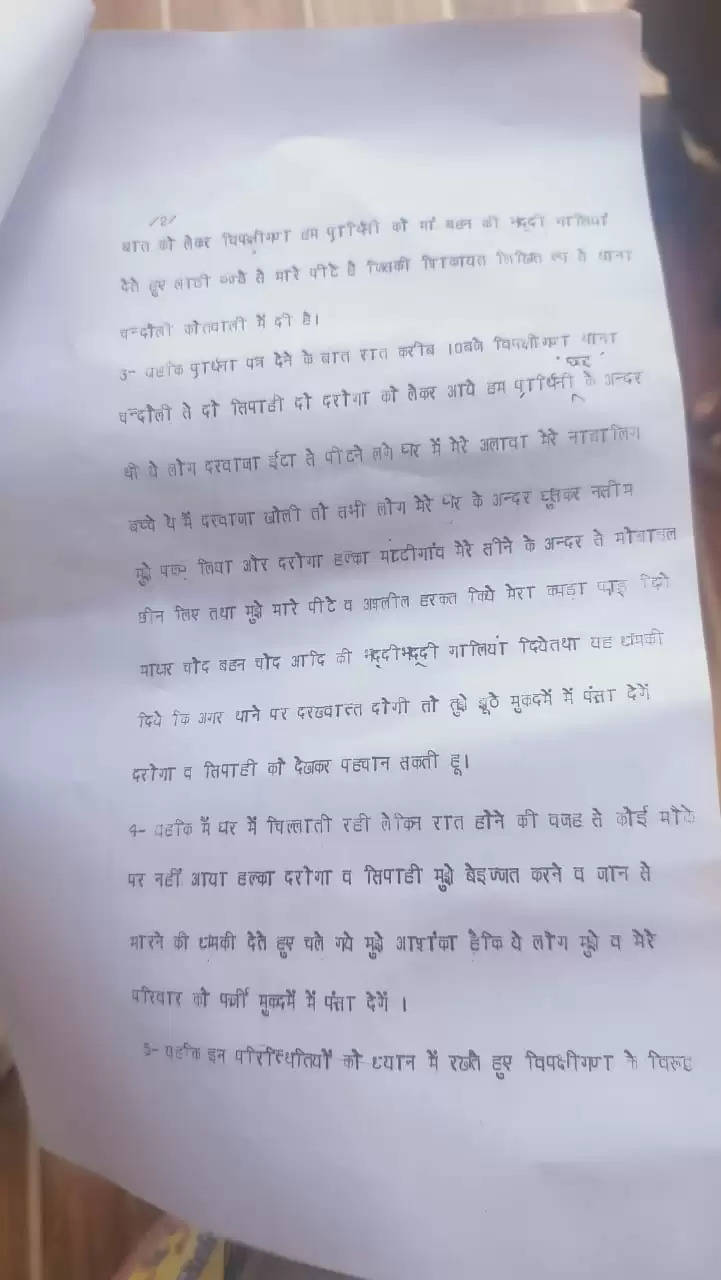 /2/
बात को लेकर विपक्षीगण हम प्रार्थिनी को मां बहन की भद्दी गालियां
देते हुए लाठी डण्डे से मारे पीटे है जिसकी शिकायत लिखित रूप से थाना
चन्दौली कोतवाली में दी है।
3- यहकि प्रार्थना पत्र देने के बात रात करीब 10बजे विपक्षीगण थाना
चन्दौली से दो सिपाही दो दरोगा को लेकर आये हम प्रार्थिनी घर के अन्दर
थी ये लोग दरवाजा ईटा से पीटने लगे घर में मेरे अलावा मेरे नाबालिग
बच्चे थे मैं दरवाजा खोली तो सभी लोग मेरे घर के अन्दर घुसकर नसीम
मुझे पकड़ लिया और दरोगा हल्का मरटीगांव मेरे सीने के अन्दर से मोबाइल
छीन लिए तथा मुझे मारे पीटे व अश्लील हरकत किये मेरा कपड़ा फाड़ दिये
माधर चोद बहन चोद आदि की भद्दीभद्दी गालियां दियेतथा यह धमकी
दिये कि अगर थाने पर दरख्वास्त दोगी तो तुझे झूठे मुकदमें में फंसा देगें
दरोगा व सिपाही को देखकर पहचान सकती हू।
4- यहकि मैं घर में चिल्लाती रही लेकिन रात होने की वजह से कोई मौके
पर नहीं आया हल्का दरोगा व सिपाही मुझे बेइज्जत करने व जान से
मारने की धमकी देते हुए चले गये मुझे आशंका हैकि ये लोग मुझे व मेरे
परिवार को फर्जी मुकदमें में फंसा देगें ।
5- यहकि इन परिस्थितियों को ध्यान में रखते हुए विपक्षीगण के विरूद्ध